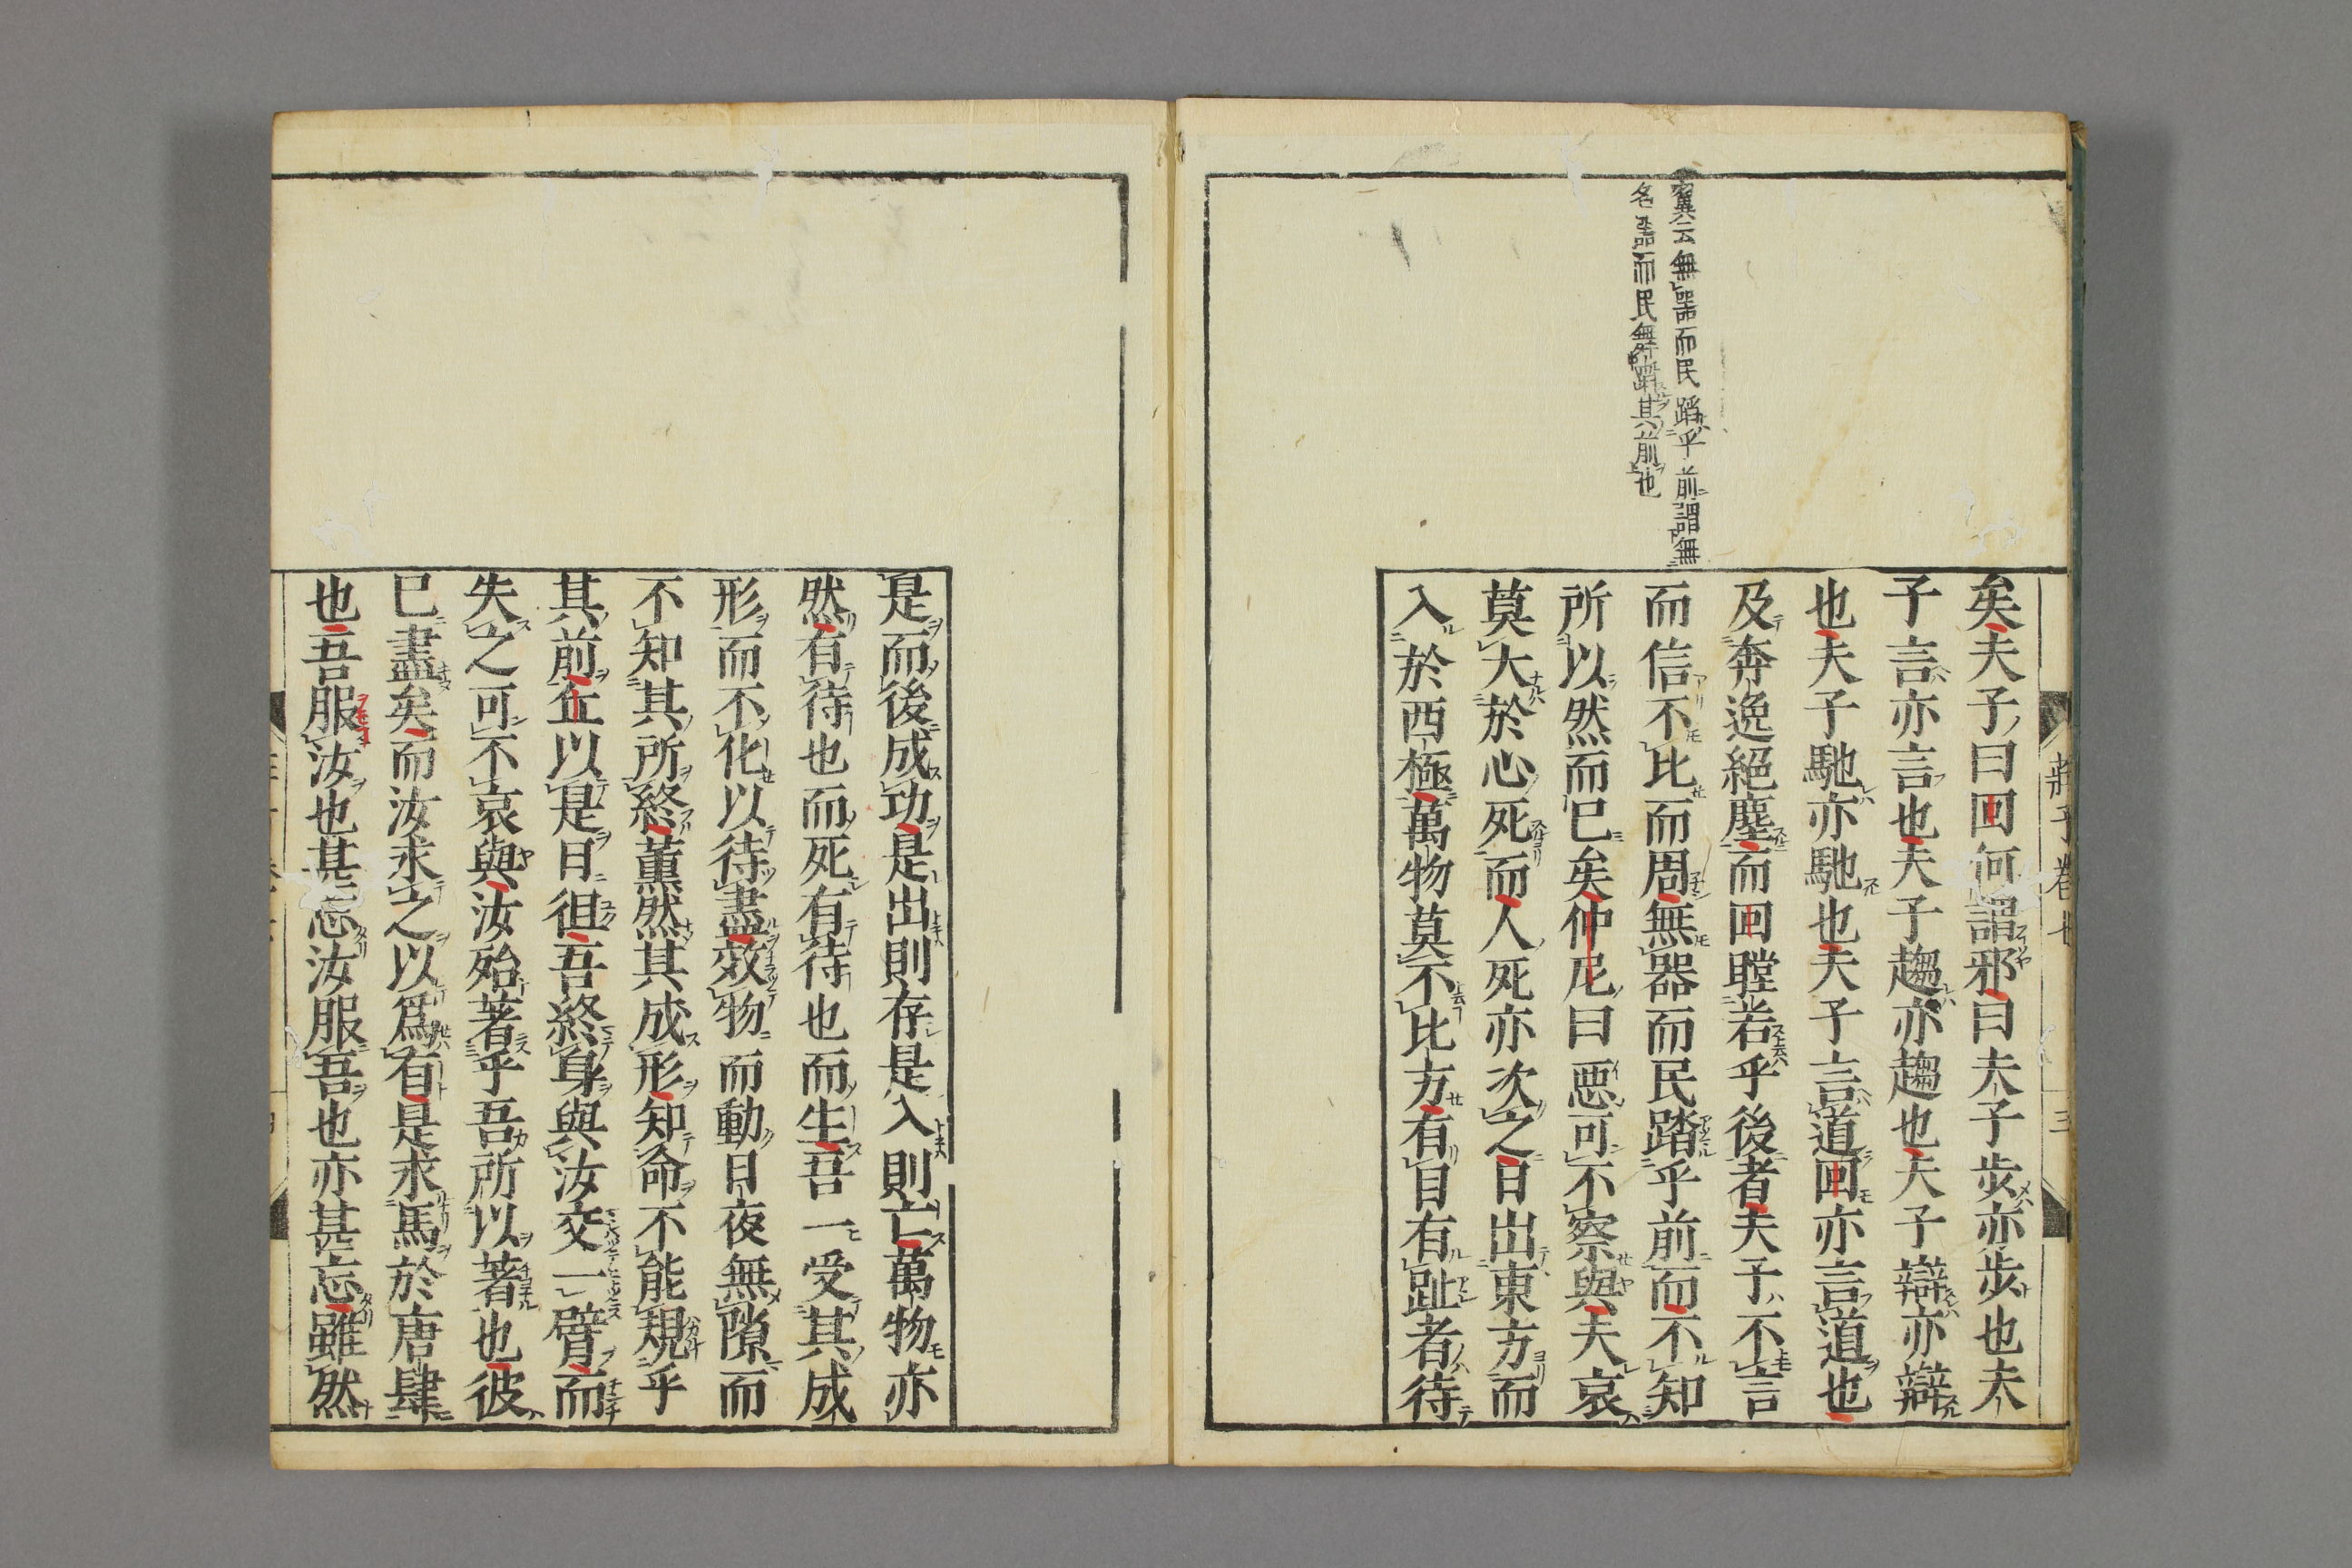 莊子卷七
三
翼云無器而民蹈乎前謂無
名器而民舞蹈其前也
矣夫子曰回何謂邪曰夫子步亦步也夫
子言亦言也夫子趨亦趨也夫子辯亦辯
也夫子馳亦馳也夫子言道回亦言道也
及奔逸絕塵而回瞠若乎後者夫子不言
而信不比而周無器而民蹈乎前而不知
所以然而已矣仲尼曰惡可不察與夫哀
莫大於心死而人死亦次之日出東方而
入於西極萬物莫不比方有目有趾者待
是而後成功是出則存是入則亡萬物亦
然有待也而死有待也而生吾一受其成
形而不化以待盡效物而動日夜無隙而
不知其所終薰然其成形知命不能規乎
其前丘以是日徂吾終身與汝交一臂而
失之可不哀與汝殆著乎吾所以著也彼
已盡矣而汝求之以爲有是求馬於唐肆
也吾服汝也甚忘汝服吾也亦甚忘雖然